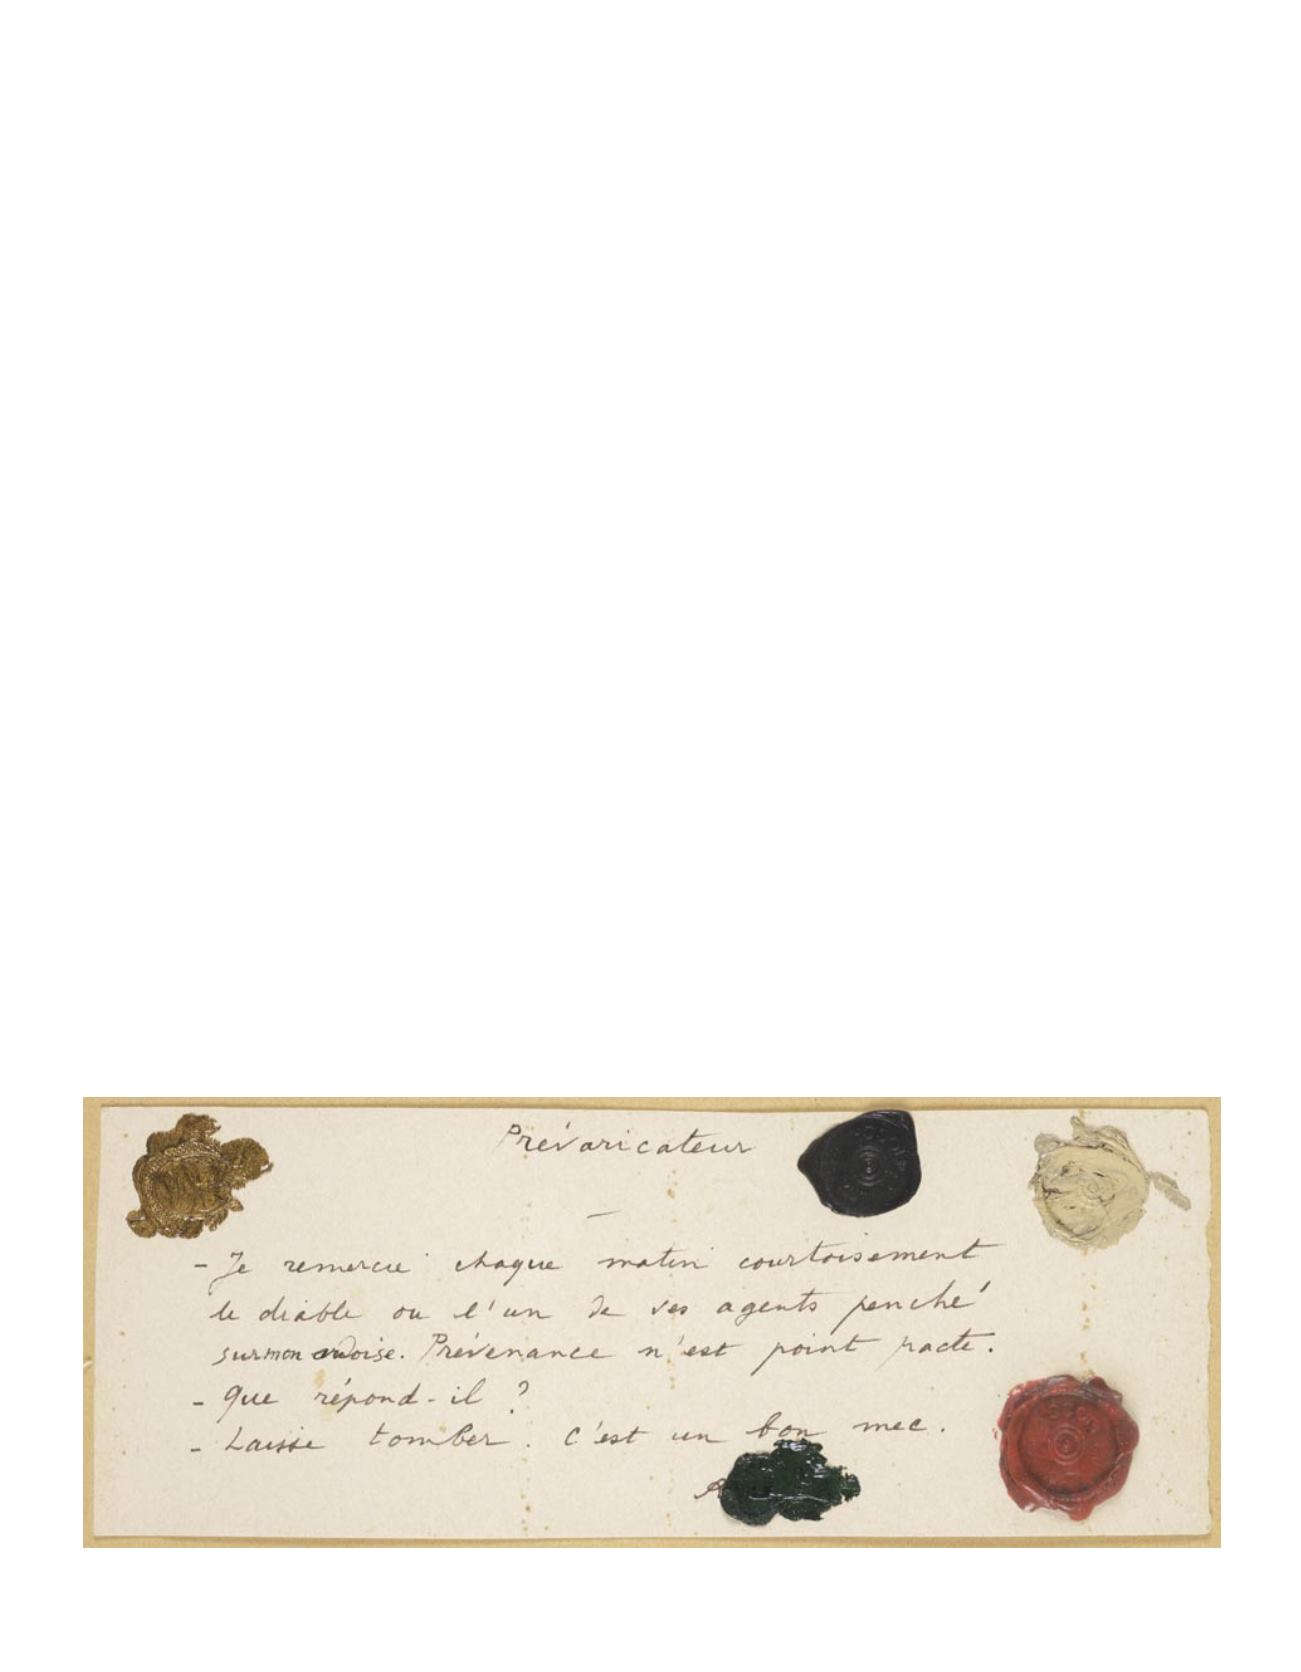 Prévaricateur
–
- Je remercie chaque matin courtoisement
le diable ou l'un de ses agents penché
sur mon ardoise. Prévenance n'est point pacte.
- Que répond-il ?
- Laisse tomber. C'est un bon mec.